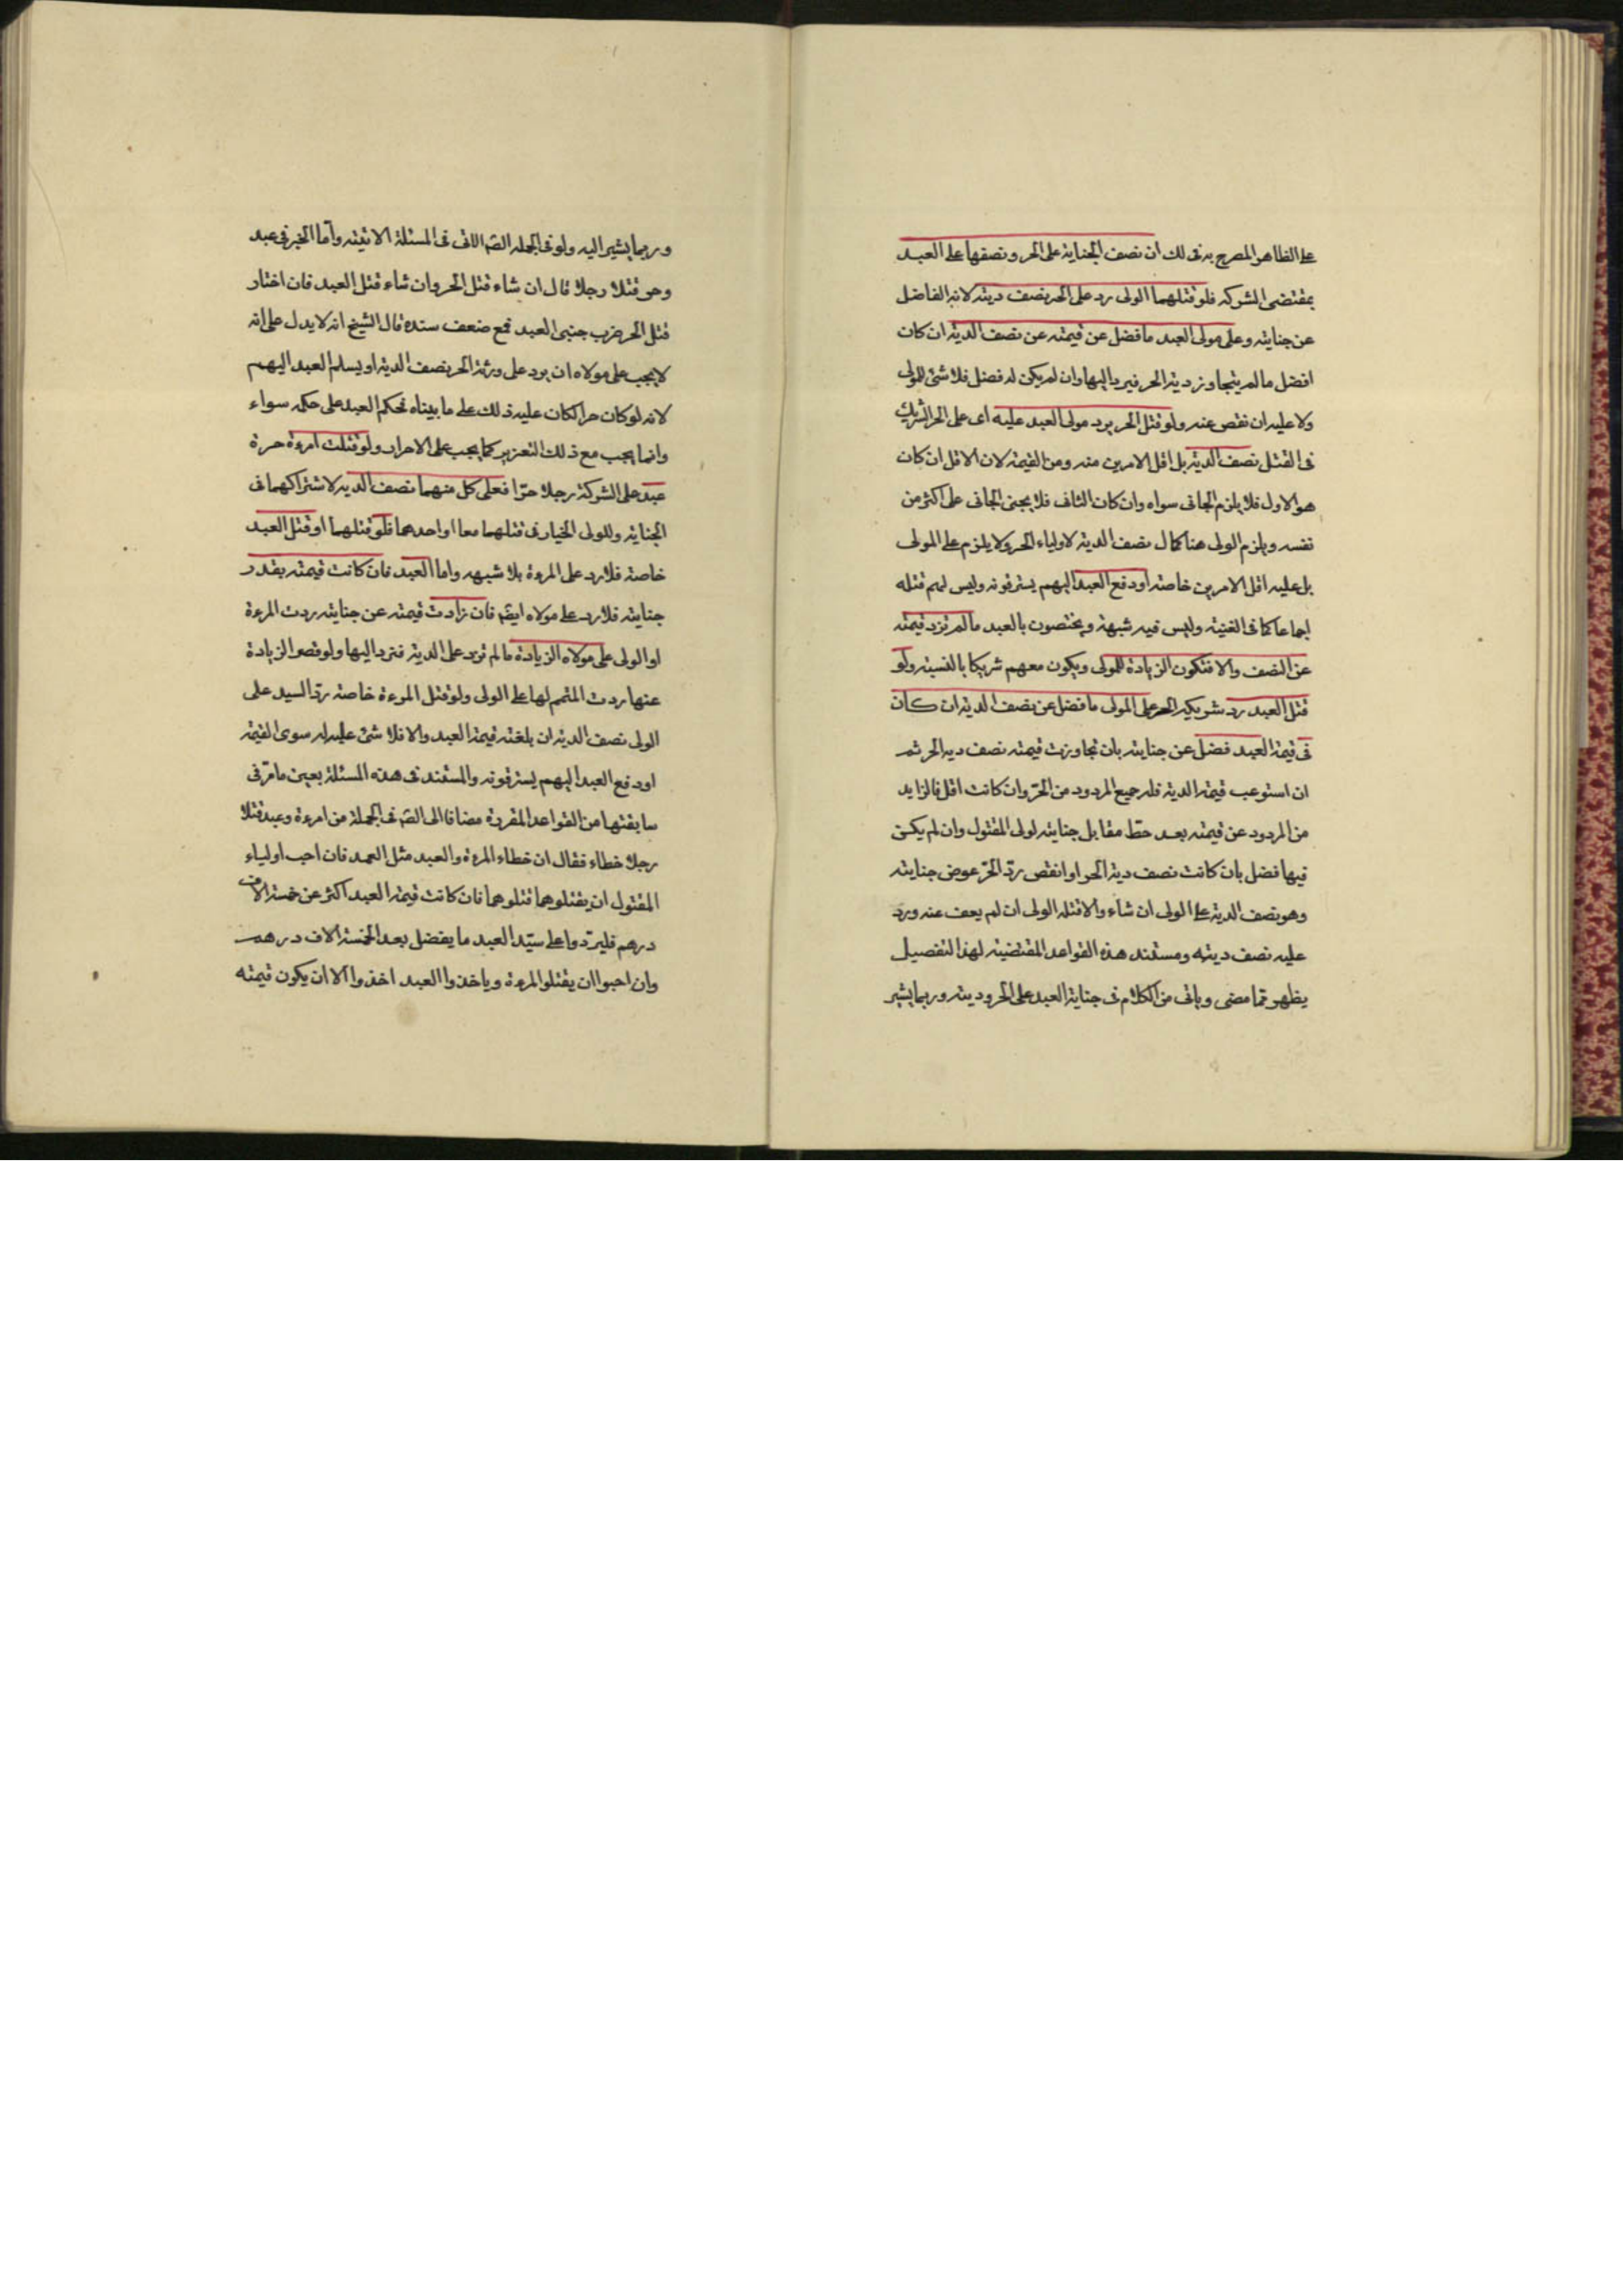 على الظاهر المصرح به فى لك ان نصف الجناية على الحر و نصفها على العبد
بمقتضى الشركه فلو قتلهما الولى رد على الحر نصف ديته لانه الفاضل
عن جنايته وعلى مولى العبد ما فضل عن قيمته عن نصف الدية ان كان
افضل مالم يتجاوز دية الحر فيرد اليها وان لم يكن له فضل فلا شئ للمولى
ولا عليه ان نقص عنه ولو قتل الحر يرد مولى العبد عليه اى على الحر الشريك
فى القتل نصف الدية بل اقل الامرين منه ومن القيمة لان الاقل ان كان
هو الاول فلا يلزم الجانى سواه وان كان الثانى فلا يجنى الجانى على اكثر من
نفسه ويلزم الولى هنا كمال نصف الدية لاولياء الحر ولا يلزم على المولى
بل عليه اقل الامرين خاصة او دفع العبد اليهم يسترقونه وليس لهم قتله
اجماعا كما فى الغنية وليس فيه شبهة ويختصون بالعبد مالم تزد قيمته
عن النصف والا فتكون الزيادة للمولى ويكون معهم شريكا بالنسبة ولو
قتل العبد رد شريكه الحر على المولى ما فضل عن نصف الدية ان كان
فى قيمة العبد فضل عن جنايته بان تجاوزت قيمته نصف دية الحر ثم
ان استوعب قيمة الدية فله جميع المردود من الحرّ وان كانت اقل فالزايد
من المردود عن قيمته بعد حطّ مقابل جنايته لولى المقتول وان لم يكن
فيها فضل بان كانت نصف دية الحر او انقص ردّ الحرّ عوض جنايته
وهو نصف الدية على الولى ان شاء والا قتله الولى ان لم يعف عنه ورد
عليه نصف ديته ومستند هذه القواعد المقتضية لهذا التفصيل
يظهر ممّا مضى وياتى من الكلام فى جناية العبد على الحر وديته وربما يشير
وربما يشير اليه ولو فى الجمله الصّ الاتى فى المسئلة الاتية وامّا الخبر فى عبد
وحر قتلا رجلا قال ان شاء قتل الحر وان شاء قتل العبد فان اختار
قتل الحر ضرب جنبى العبد فمع ضعف سنده قال الشيخ انه لا يدل على انه
لا يجب على مولاه ان يرد على ورثة الحر نصف الدية او يسلم العبد اليهم
لانه لو كان حرا لكان عليه ذلك على ما بيناه فحكم العبد على حكمه سواء
وانما يجب مع ذلك التعزير كما يجب على الاحرار ولو قتلت امرءة حرة
عبد على الشركة رجلا حرّا فعلى كل منهما نصف الدية لاشتراكهما فى
الجناية وللولى الخيار فى قتلهما معا او احدهما فلو قتلهما او قتل العبد
خاصة فلا رد على المرءة بلا شبهه واما العبد فان كانت قيمته بقدر
جنايته فلا رد على مولاه ايضا فان زادت قيمته عن جنايته ردت المرءة
او الولى على مولاه الزيادة مالم تزد على الدية فترد اليها ولو قصر الزيادة
عنها ردت المتمم لها على الولى ولو قتل المرءة خاصة ردّ السيد على
الولى نصف الدية ان بلغته قيمة العبد والا فلا شئ عليه له سوى القيمة
او دفع العبد اليهم يسترقونه والمستند فى هذه المسئلة بعين ما مرّ فى
سابقتها من القواعد المقررة مضافا الى الصّ فى الجملة من امرءة وعبد قتلا
رجلا خطاء فقال ان خطاء المرءة والعبد مثل العمد فان احب اولياء
المقتول ان يقتلوهما قتلوهما فان كانت قيمة العبد اكثر عن خمسة الاف
درهم فليردّوا على سيّد العبد ما يفضل بعد الخمسة الاف درهم
وان احبوا ان يقتلوا المرءة و ياخذوا العبد اخذوا الا ان يكون قيمته